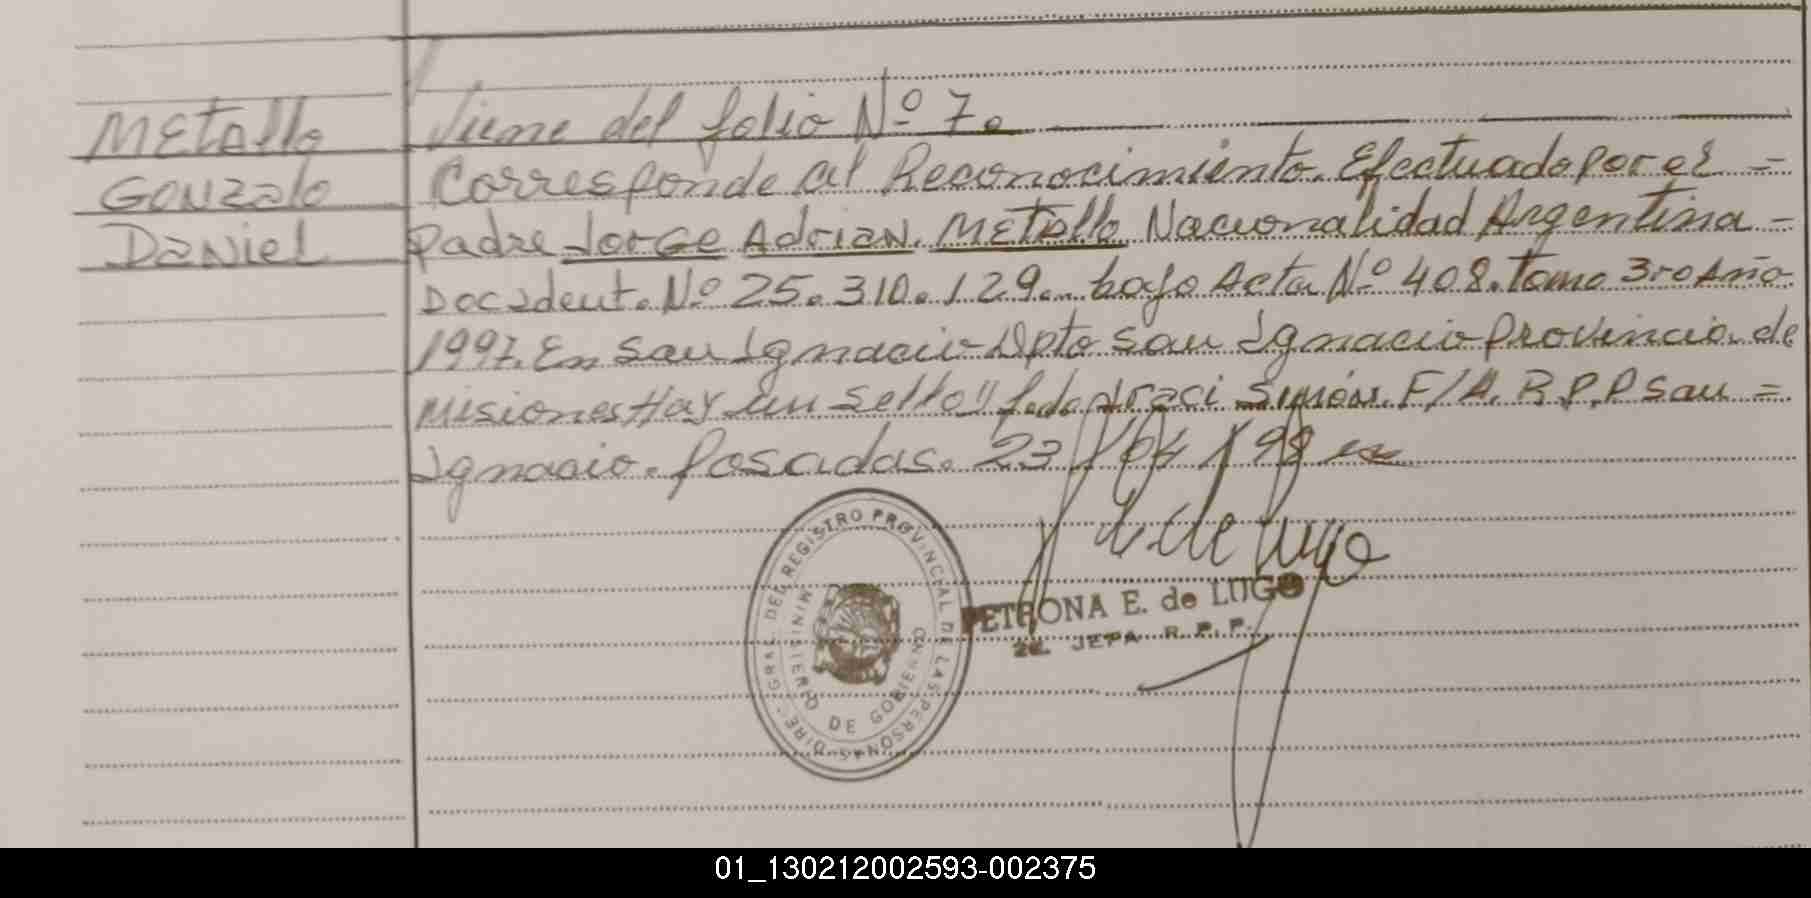 Metallo
Gonzalo
Daniel
Viene del folio Nº 7.
Corresponde al Reconocimiento. Efectuado por el =
Padre Jorge Adrian. Metallo Nacionalidad Argentina =
Doc. Ident. Nº 25.310.129. bajo Acta Nº 408. Tomo 3ro Año
1997. En San Ignacio Dpto San Ignacio Provincia de
Misiones Hay un sello" fdo Simón. F/A. R.P.P San =
Ignacio. Posadas. 23/04/98
DIRE. GRAL DEL REGISTRO PROVINCIAL DE LAS PERSONAS
MINISTERIO DE GOBIERNO
PETRONA E. de LUGO
2a. JEFA R. P. P.
01_130212002593-002375